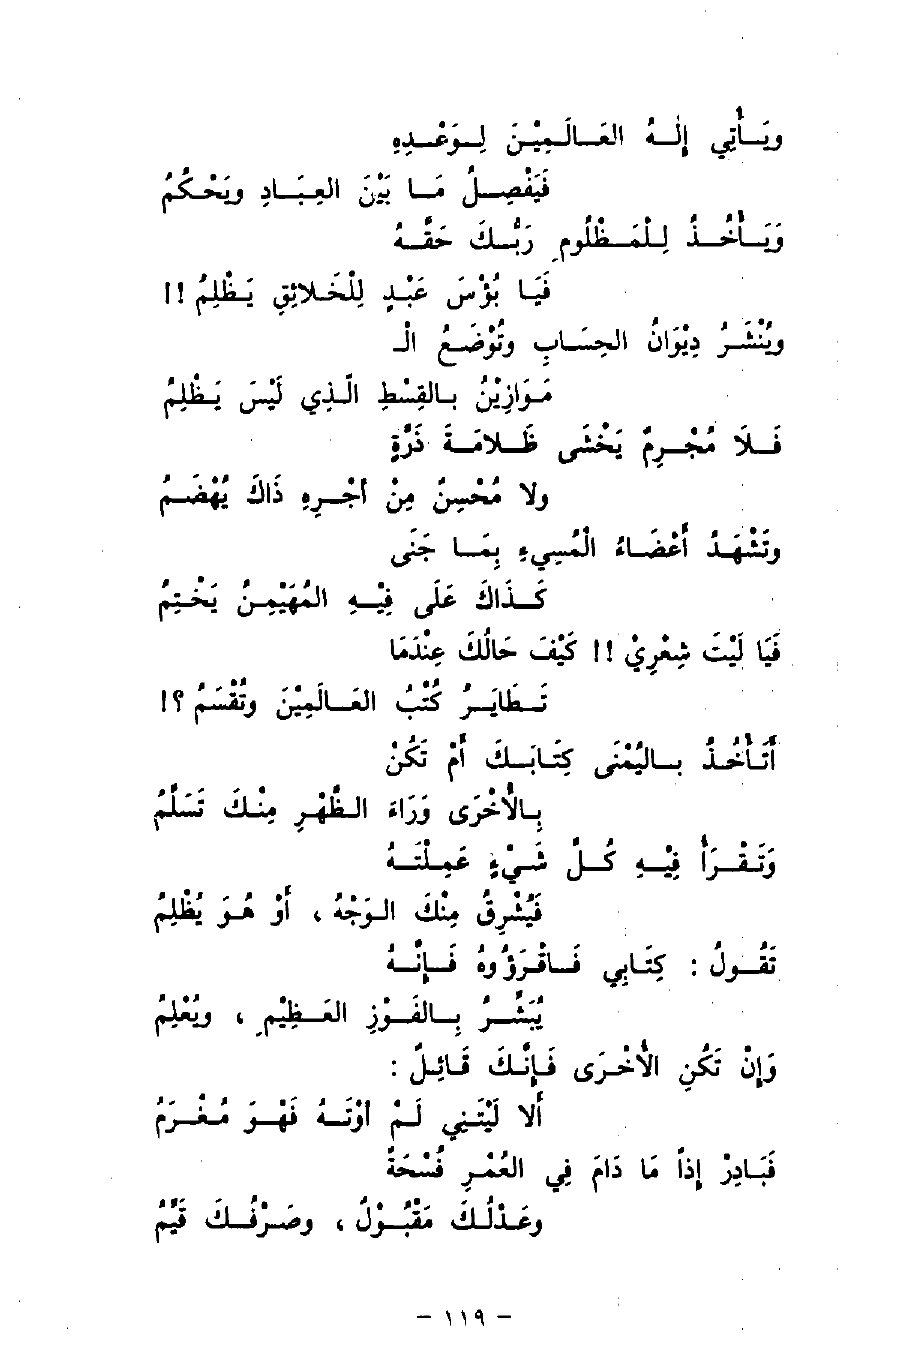 ويَأْتِي إِلَهُ العَالَمِيْنَ لِوَعْدِهِ
فَيَفْصِلُ مَا بَيْنَ العِبَادِ ويَحْكُمُ
وَيَأْخُذُ لِلْمَظْلُومِ رَبُّكَ حَقَّهُ
فَيَا بُؤْسَ عَبْدٍ لِلْخَلائِقِ يَظْلِمُ !!
ويُنْشَرُ دِيْوَانُ الحِسَابِ وتُوْضَعُ الْـ
مَوَازِيْنُ بالقِسْطِ الَّذِي لَيْسَ يَظْلِمُ
فَلَا مُجْرِمٌ يَخْشَى ظَلامَةَ ذَرَّةٍ
ولا مُحْسِنٌ مِنْ أَجْرِهِ ذَاكَ يُهْضَمُ
وتَشْهَدُ أَعْضَاءُ الْمُسِيءِ بِمَا جَنَى
كَذَاكَ عَلَى فِيْهِ المُهَيْمِنُ يَخْتِمُ
فَيَا لَيْتَ شِعْرِيْ !! كَيْفَ حَالُكَ عِنْدَمَا
تَطَايَرُ كُتْبُ العَالَمِيْنَ وتُقْسَمُ ؟!
أَتَأْخُذُ بالْيُمْنَى كِتَابَكَ أَمْ تَكُنْ
بِالْأُخْرَى وَرَاءَ الظَّهْرِ مِنْكَ تَسَلَّمُ
وَتَقْرَأُ فِيْهِ كُلَّ شَيْءٍ عَمِلْتَهُ
فَيُشْرِقُ مِنْكَ الوَجْهُ ، أَوْ هُوَ يُظْلِمُ
تَقُولُ : كِتَابِي فَاقْرَؤُوهُ فَإِنَّهُ
يُبَشِّرُ بِالفَوْزِ العَظِيْمِ ، ويُعْلِمُ
وَإِنْ تَكُنِ الأُخْرَى فَإِنَّكَ قَائِلٌ :
أَلا لَيْتَنِي لَمْ أُوْتَهُ فَهْوَ مُغْرَمُ
فَبَادِرْ إِذاً مَا دَامَ فِي العُمْرِ فُسْحَةٌ
وعَدْلُكَ مَقْبُوْلٌ ، وصَرْفُكَ قَيِّمُ
- ١١٩ -